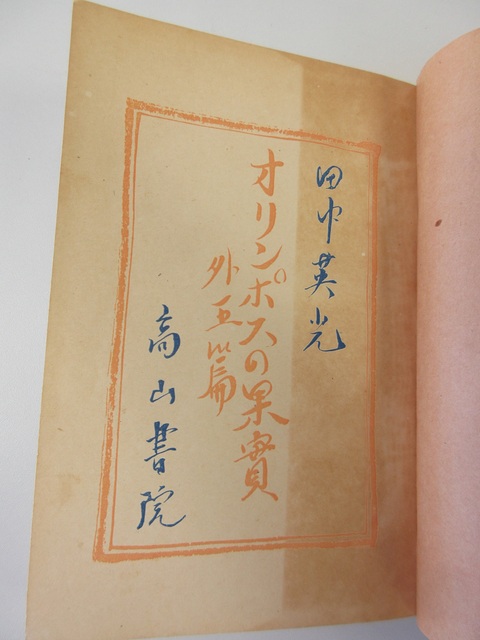 田中英光
オリンポスの果實
外五篇
高山書院